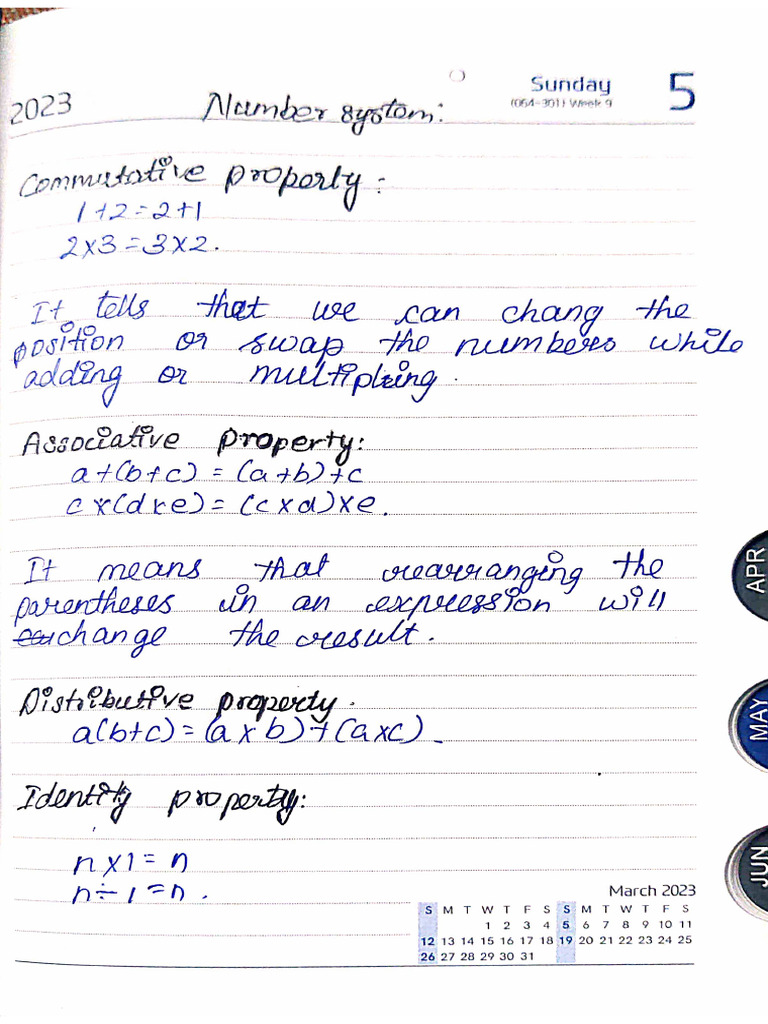 2023
Number system:
Sunday
(064-301) Week 9
5
Commutative property:
1+2=2+1
2×3=3×2.
It tells that we can chang the
position or swap the numbers while
adding or multipling.
Associative property:
a+(b+c) = (a+b)+c
c×(d×e) = (c×d)×e.
It means that rearranging the
parentheses in an expression will
change the result.
Distributive property.
a(b+c) = (a×b)+(a×c)
Identity property:
n×1=n
n÷1=n.
APR
MAY
JUN
March 2023
S M T W T F S S M T W T F S
1 2 3 4 5 6 7 8 9 10 11
12 13 14 15 16 17 18 19 20 21 22 23 24 25
26 27 28 29 30 31